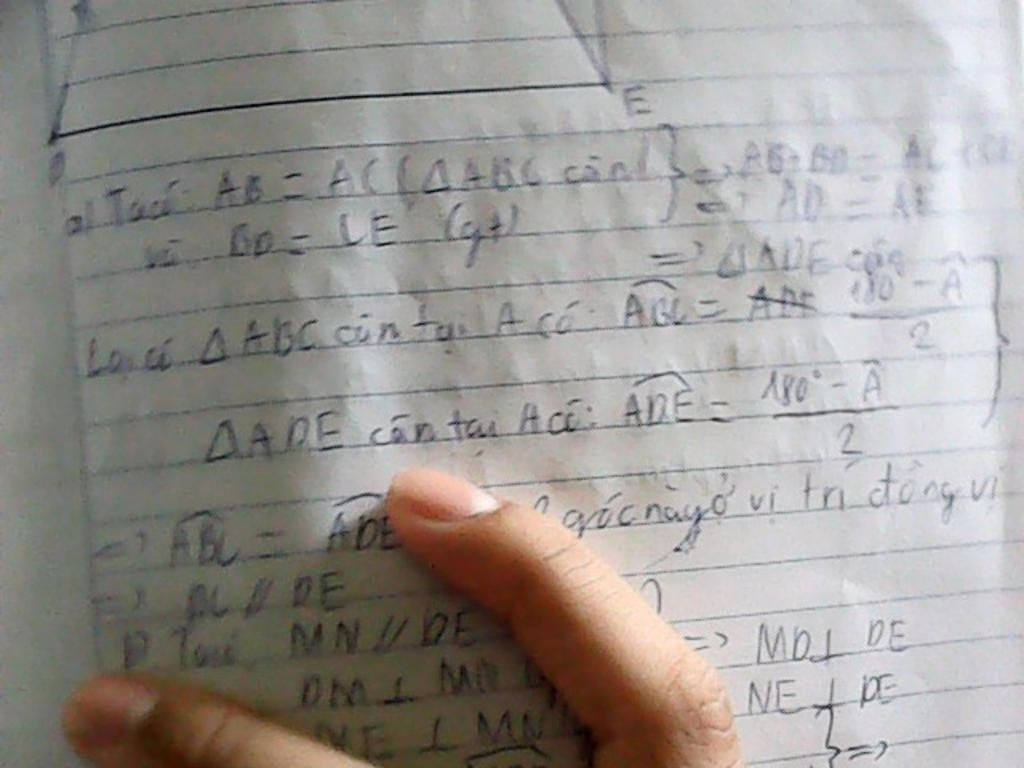 E
D
a) Ta có: AB = AC (ΔABC cân) } => AB + BD = AC + CE
và BD = CE (gt) => AD = AE
=> ΔADE cân
Lại có ΔABC cân tại A có: ABC = 180° - Â / 2
ΔADE cân tại A có: ADE = 180° - Â / 2
=> ABC = ADE 2 góc này ở vị trí đồng vị
=> BC // DE
b) Ta có MN // DE => MD ⊥ DE
DM ⊥ MN NE ⊥ DE
NE ⊥ MN } =>